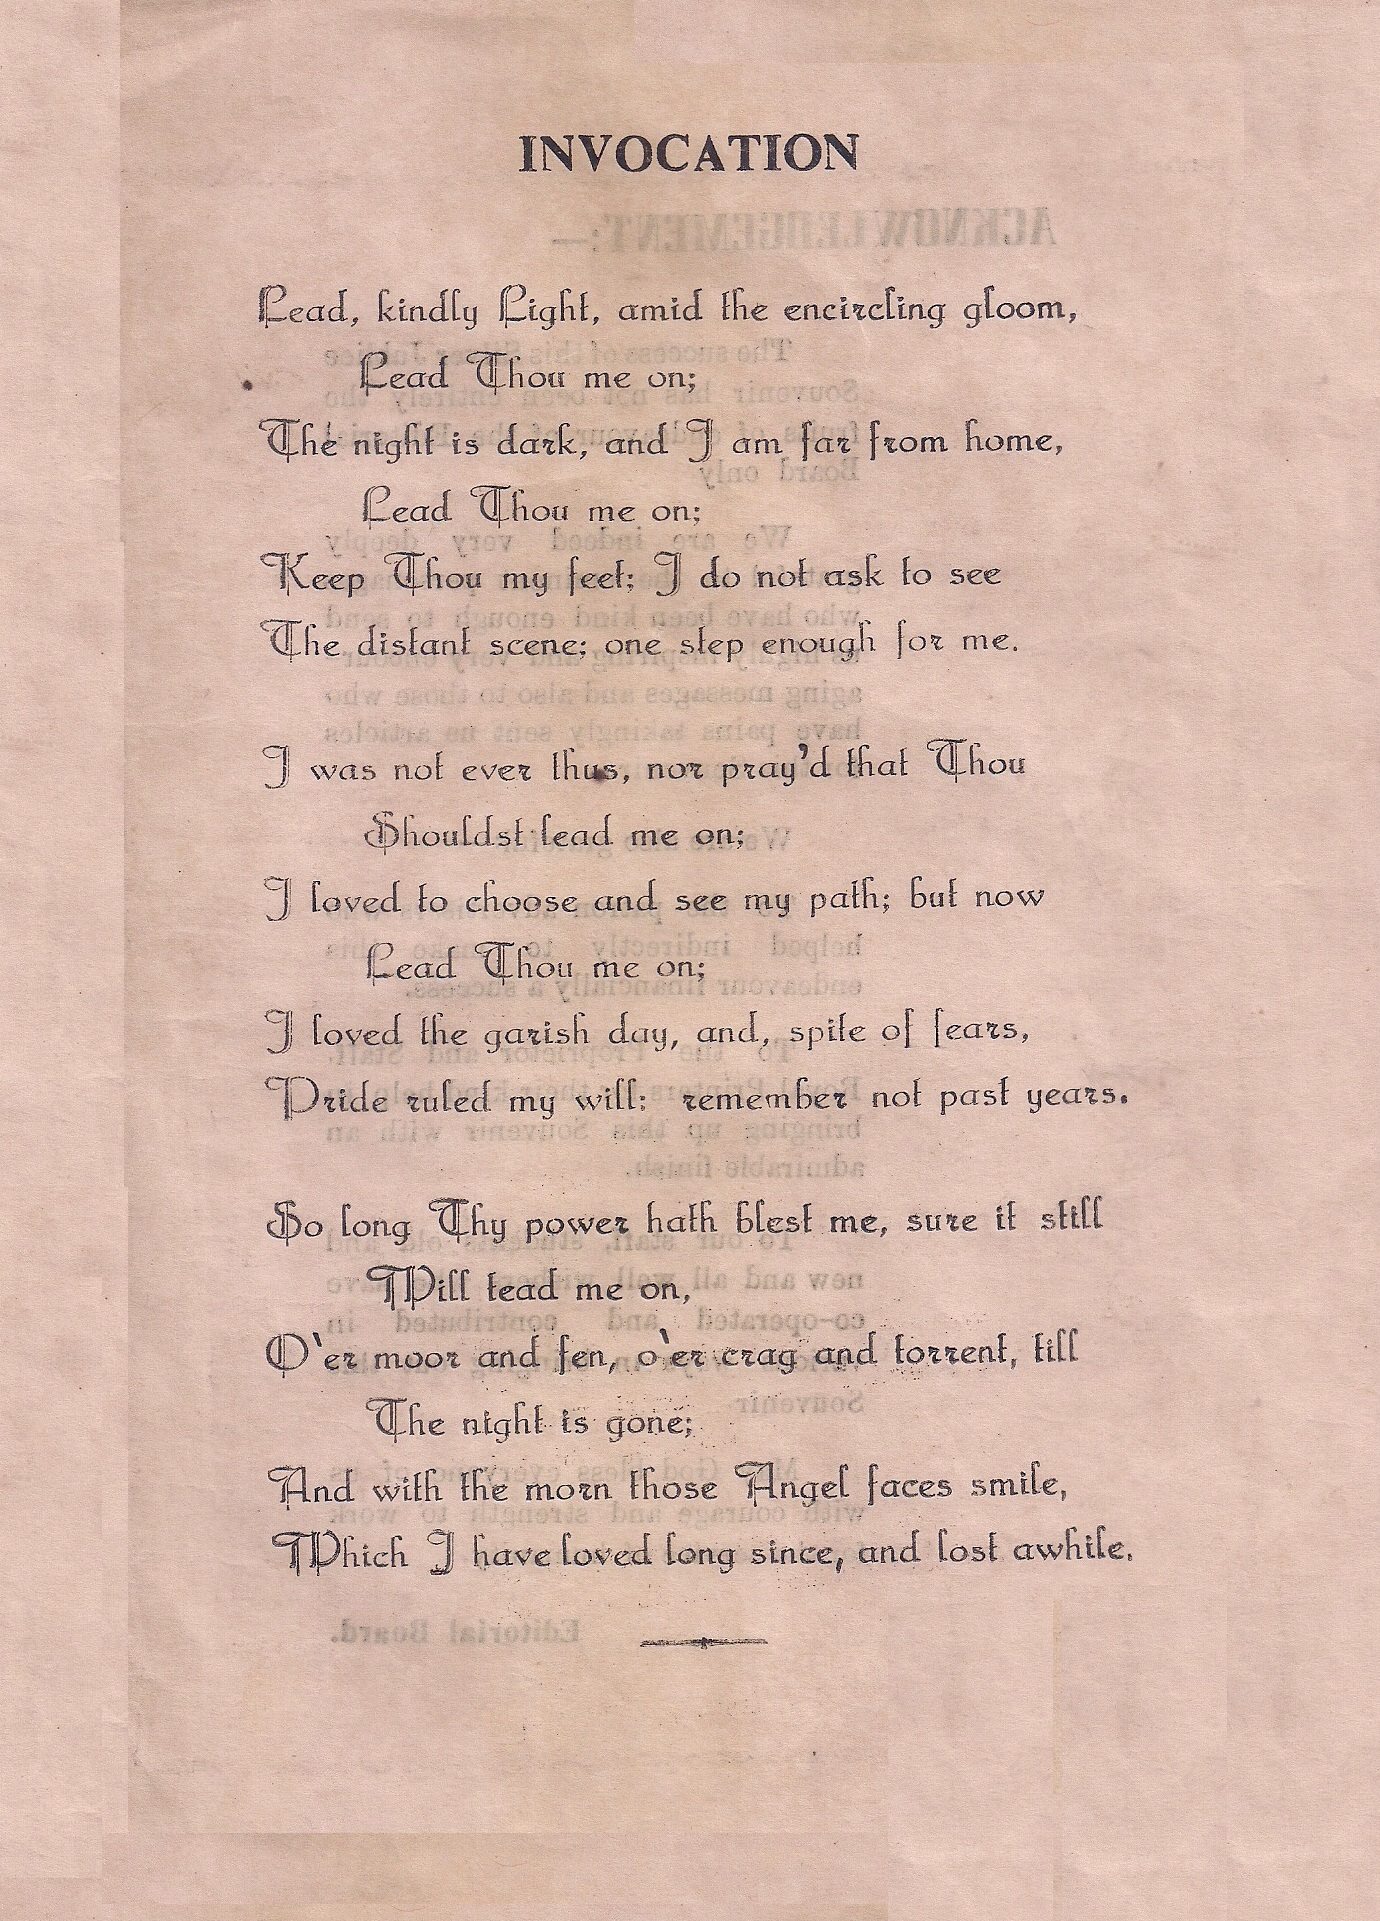 INVOCATION
Lead, kindly Light, amid the encircling gloom,
Lead Thou me on;
The night is dark, and I am far from home,
Lead Thou me on;
Keep Thou my feet; I do not ask to see
The distant scene; one step enough for me.
I was not ever thus, nor pray'd that Thou
Shouldst lead me on;
I loved to choose and see my path; but now
Lead Thou me on;
I loved the garish day, and, spite of fears,
Pride ruled my will: remember not past years.
So long Thy power hath blest me, sure it still
Will lead me on,
O'er moor and fen, o'er crag and torrent, till
The night is gone;
And with the morn those Angel faces smile,
Which I have loved long since, and lost awhile.